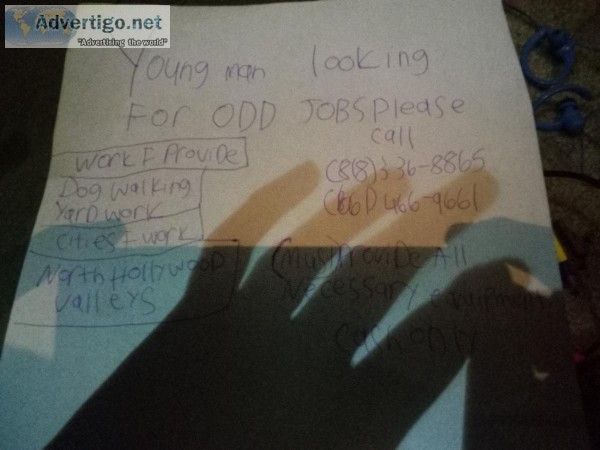 Advertigo.net
"Advertising the world"
Young man looking
For ODD JOBS please
call
Work I Provide
Dog walking
Yard work
Cities I work
North Hollywood
valleys
(818)336-8865
(661)466-9661
(must) Provide All
Necessary equipment
cash only